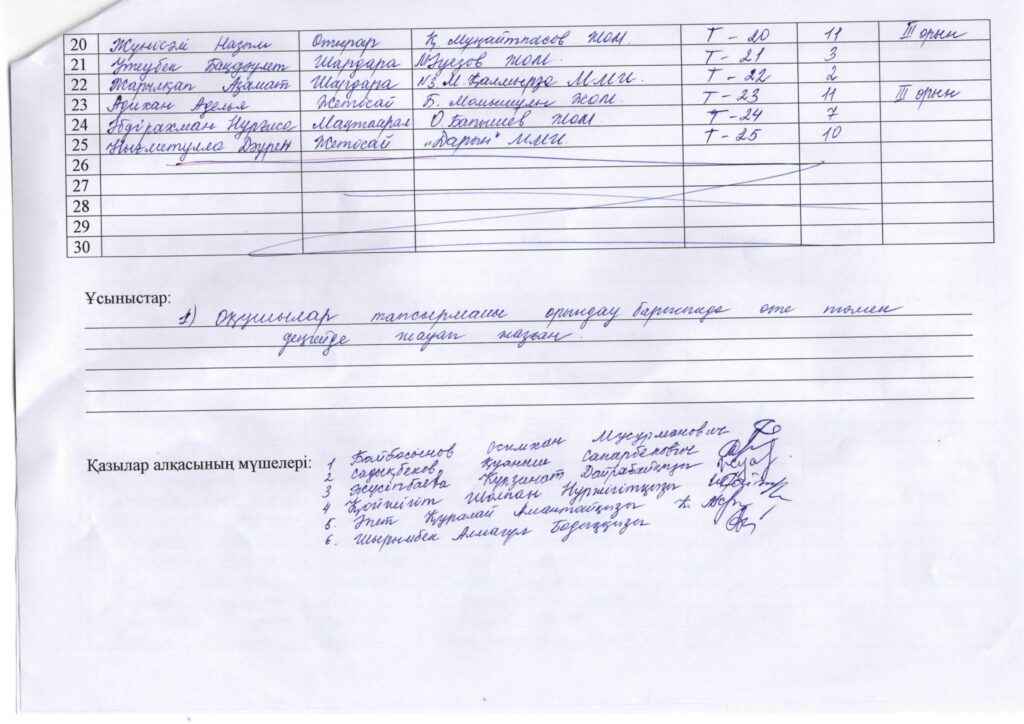 20 Жүнісәлі Назым Отырар Қ Мұңайтпасов ЖОМ. Т - 20 11 III орын
21 Утеубек Бақдәулет Шардара М Әуезов ЖОМ. Т - 21 3
22 Жарылқап Азамат Шардара №3 М. Қалмырза ММИ. Т - 22 2
23 Адихан Аделья Жетісай Б. Момышұлы ЖОМ. Т - 23 11 III орын
24 Әбдірахман Нұрғиса Мақтаарал О Бапышев ЖОМ Т - 24 7
25 Дәурен Жетісай "Дарын" ММИ Т - 25 10
26
27
28
29
30
Ұсыныстар:
1) Оқушылар тапсырманы орындау барысында өте төмен
деңгейде жауап жазған.
Қазылар алқасының мүшелері:
1 Байбосынов Осымхан Мусурманович
2 Садықбеков Қуаныш Сапарбекович
3 Жүсіпбаева Құрзинат Дайрабайқызы
4 Қойжігіт Шолпан Нұржігітқызы
5. Әпет Құралай Амантайқызы
6. Шырымбек Алмагүл